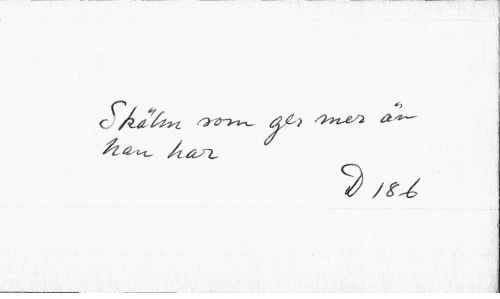 Skälm som ger mer än
han har
D 186